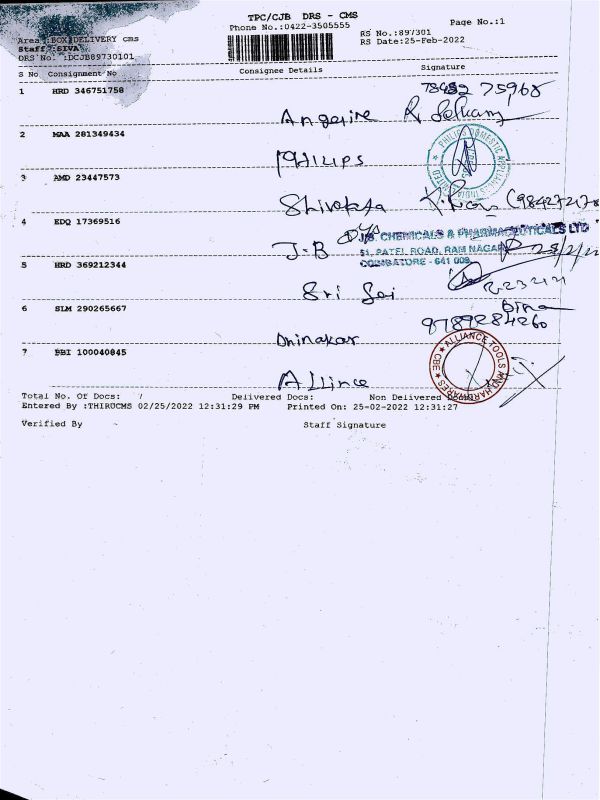 TPC/CJB DRS - CMS
Phone No.:0422-3505555
Page No.:1
Area :BOX DELIVERY cms
RS No.:897301
Staff :SIVA
RS Date:25-Feb-2022
DRS No. :DCJB89730101
S No Consignment No Consignee Details Signature
1 HRD 346751758
Angerine
2 MAA 281349434
PHILIPS
PHILIPS DOMESTIC APPLIANCES INDIA LIMITED
3 AMD 23447573
4 EDQ 17369516
J-B
J.B. CHEMICALS & PHARMACEUTICALS LTD
51, PATEL ROAD, RAM NAGAR
COIMBATORE - 641 009.
5 HRD 369212344
Sri Sai
6 SLM 290265667
9789284260
Dninakar
7 BBI 100040845
Allince
ALLIANCE TOOLS CBE
Total No. Of Docs: 7 Delivered Docs: Non Delivered Docs:
Entered By :THIRUCMS 02/25/2022 12:31:29 PM Printed On: 25-02-2022 12:31:27
Verified By Staff Signature